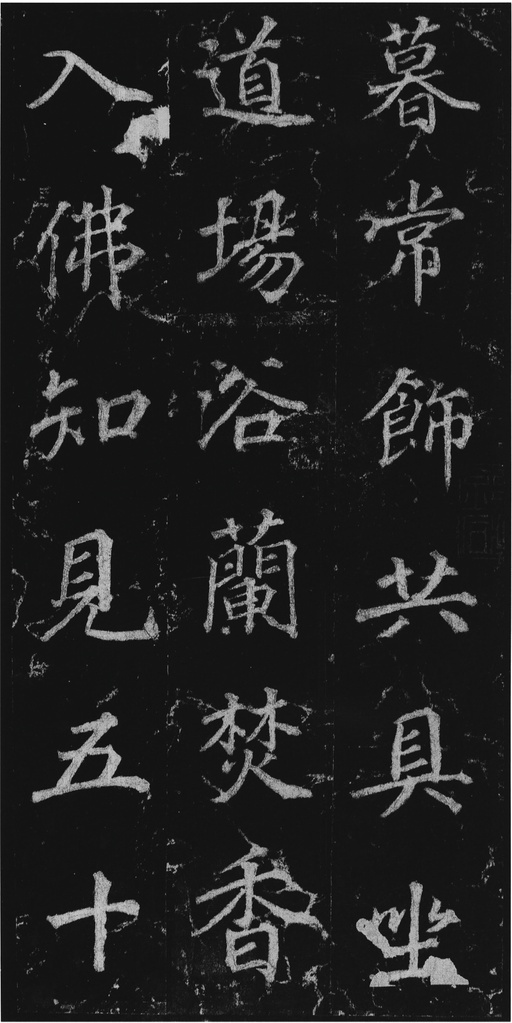 暮常飾共具坐
道場浴蘭焚香
入佛知見五十